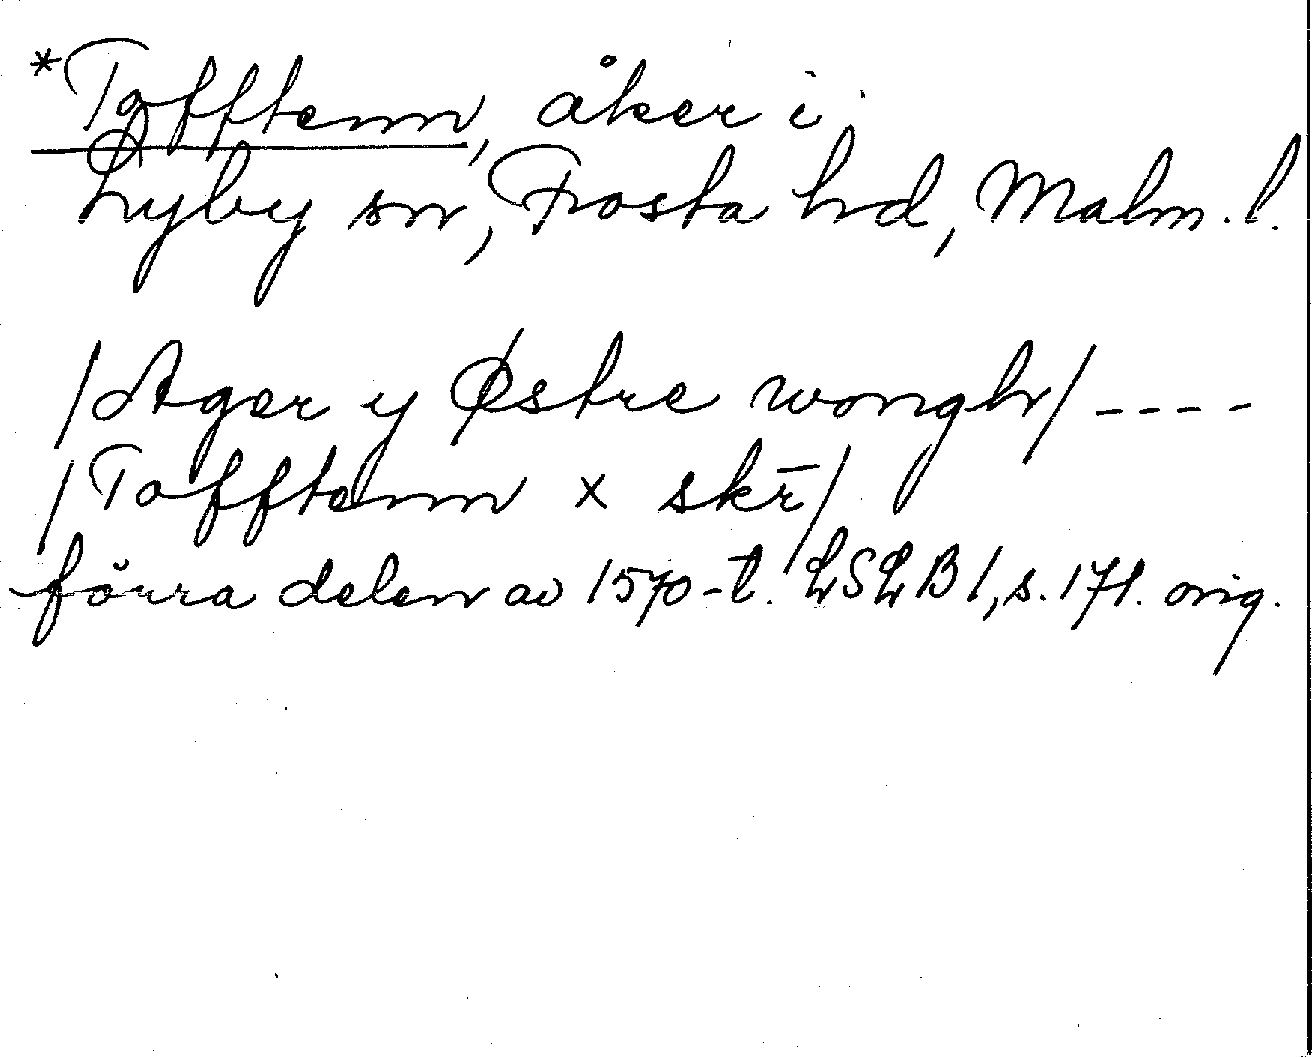 *Tofftenn, åker i
Lyby sn, Frosta hd, Malm. l.
/Ager y Østre wongh/ ----
/Tofftenn x skr̄/
förra delen av 1570-t. LSLB 1, s. 171. orig.